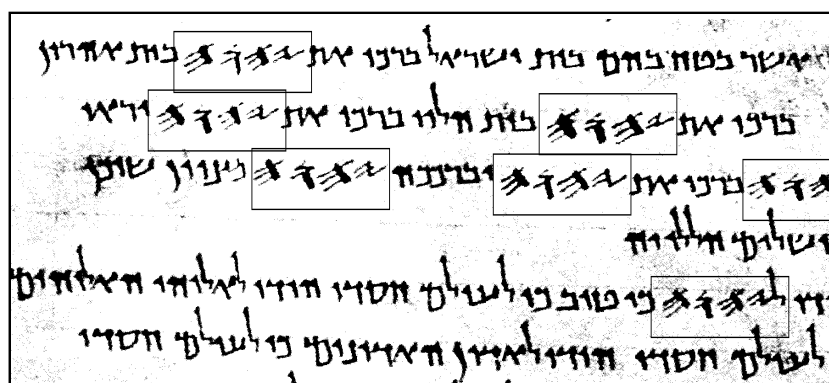 אשר בטח בהם בית ישראל ברכו את 𐤉𐤄𐤅𐤄 בית אהרון
ברכו את 𐤉𐤄𐤅𐤄 בית הלוי ברכו את 𐤉𐤄𐤅𐤄 יראי
𐤄𐤅𐤄 ברכו את 𐤉𐤄𐤅𐤄 יברככה 𐤉𐤄𐤅𐤄 מציון שוכן
ושלים הללויה
ודו ל𐤉𐤄𐤅𐤄 כי טוב כי לעולם חסדו הודו לאלוהי האלוהים
לעולם חסדו הודו לאדון האדונים כי לעולם חסדו